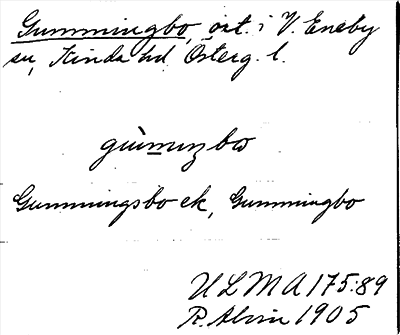 Gummingbo, ort. i V. Eneby
su, Kinda hd Österg. l.
gùmuŋbω
Gummingsbo ek, Gummingbo
ULMA 175:89
R. Alvin 1905